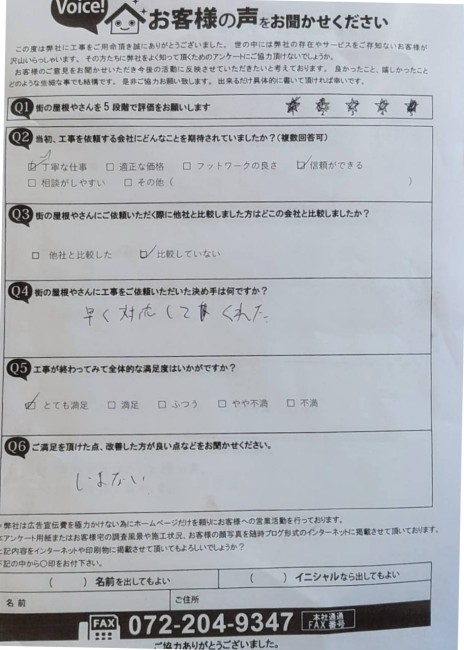 Voice!
お客様の声をお聞かせください
この度は弊社に工事をご用命頂き誠にありがとうございました。世の中には弊社の存在やサービスをご存知ないお客様が
沢山いらっしゃいます。その方たちに弊社をよく知って頂くためのアンケートにご協力頂けないでしょうか。
お客様のご意見をお聞かせいただき今後の活動に反映させていただきたいと考えております。良かったこと、嬉しかったこと
どのような些細な事でも結構です。是非ご協力お願い致します。出来るだけ具体的に書いて頂ければ幸いです。
Q1 街の屋根やさんを5段階で評価をお願いします ★ ★ ★ ★ ★
Q2 当初、工事を依頼する会社にどんなことを期待されていましたか?(複数回答可)
☑ 丁寧な仕事 □ 適正な価格 □ フットワークの良さ ☑ 信頼ができる
□ 相談がしやすい □ その他 ( )
Q3 街の屋根やさんにご依頼いただく際に他社と比較しました方はどこの会社と比較しましたか?
□ 他社と比較した ☑ 比較していない
Q4 街の屋根やさんに工事をご依頼いただいた決め手は何ですか?
早く対応してくれた
Q5 工事が終わってみて全体的な満足度はいかがですか?
☑ とても満足 □ 満足 □ ふつう □ やや不満 □ 不満
Q6 ご満足を頂けた点、改善した方が良い点などをお聞かせください。
弊社は広告宣伝費を極力かけない為にホームページだけを頼りにお客様への営業活動を行っております。
アンケート用紙またはお客様宅の調査風景や施工状況、お客様の顔写真を随時ブログ形式のインターネットに掲載させて頂いております。
記内容をインターネットや印刷物に掲載させて頂いてもよろしいでしょうか?
下記の中から○印をお付下さい。
( ) 名前を出してもよい ( ) イニシャルなら出してもよい
名前 ご住所
FAX 072-204-9347 本社直通 FAX番号
ご協力ありがとうございました。